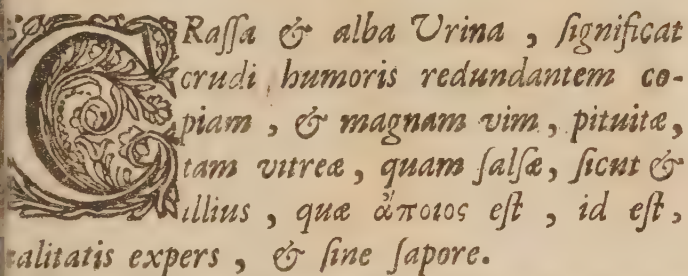 CRaſſa & alba Urina, ſignificat
crudi humoris redundantem co-
piam, & magnam vim, pituitæ,
tam vitreæ, quam ſalſæ, ſicut &
illius, quæ ἄποιος eſt, id eſt,
alitatis expers, & ſine ſapore.